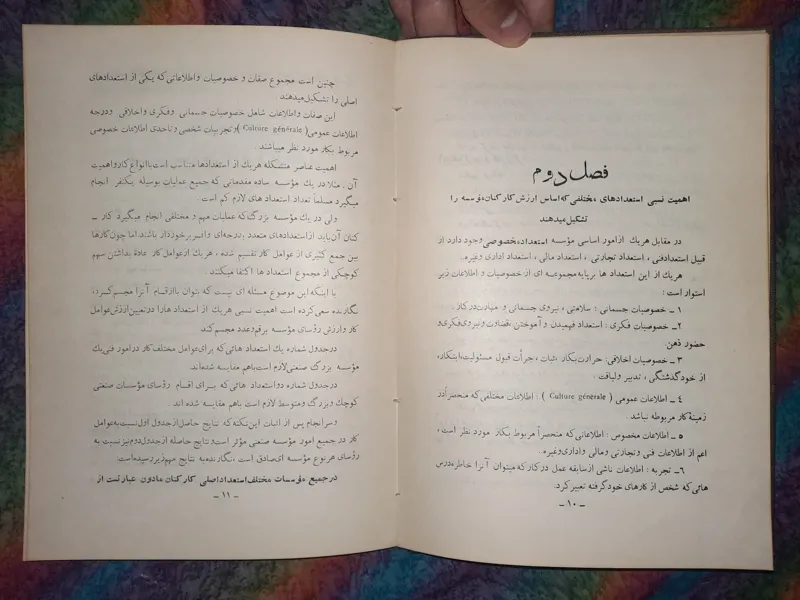 فصل دوم
اهمیت نسبی استعدادهای مختلفی که اساس ارزش کارکنان مؤسسه را
تشکیل میدهند
در مقابل هریك ازامور اساسی مؤسسه استعداد،خصوصی وجود دارد از
قبیل استعدادفنی ، استعداد تجارتی ، استعداد مالی ، استعداد اداری وغیره..
هریك از این استعداد ها برپایه‌مجموعه ای از خصوصیات و اطلاعات زیر
استوار است :
۱ ـ خصوصیات جسمانی : سلامتی ، نیروی جسمانی و مهارت در کار .
۲ـ خصوصیات فکری : استعداد فهمیدن و آموختن ،قضاوت‌ونیروی‌فکری‌و
حضور ذهن.
۳ ـ خصوصیات اخلاقی: حرارت‌بکار ،ثبات ، جرأت قبول مسئولیت،ابتکار،
از خودگذشتگی ، تدبیر ولیاقت.
٤ ـ اطلاعات عمومی ( Culture générale ) : اطلاعات مختلفی که منحصراً‌در
زمینهٔ کار مربوطه نباشد .
۵ ـ اطلاعات مخصوص : اطلاعاتی که منحصراً مربوط بکار مورد نظر است ،
اعم از اطلاعات فنی وتجارتی ومالی واداری‌وغیره.
۶ـ تجربه : اطلاعات ناشی ازسابقه عمل درکارکه میتوان آنرا خاطره‌درس
هائی که شخص از کارهای خودگرفته تعبیرکرد.
ـ ۱۰ ـ
چنین است مجموع صفات و خصوصیات واطلاعاتی که یکی از استعدادهای
اصلی را تشکیل میدهند
این صفات واطلاعات شامل خصوصیات جسمانی وفکری واخلاقی ودرجه
اطلاعات عمومی( Culture générale )وتجربیات شخصی وتاحدی اطلاعات خصوصی
مربوط بکار مورد نظر میباشند .
اهمیت عناصر متشکله هریك از استعدادها متناسب است باانواع کارواهمیت
آن . مثلا در یك مؤسسه ساده مقدماتی که جمیع عملیات بوسیله یکنفر انجام
میگیرد مسلماً تعداد استعداد های لازم کم است .
ولی در یك مؤسسه بزرگ که عملیات مهم و مختلفی انجام میگیرد کار ـ
کنان آن‌باید ازاستعدادهای متعدد بدرجه‌ای وافر‌برخوردار باشند اما چون‌کارها
بین جمع کثیری از عوامل کار تقسیم شده ، هریك ازعوامل‌کار عادة بداشتن سهم
کوچکی از مجموع استعداد ها اکتفا میکنند
با اینکه این موضوع مسئله ای نیست که بتوان باارقام آنرا مجسم کرد،
نگارنده سعی‌کرده است اهمیت نسبی هریك از استعداد هارا درتعیین‌ارزش‌عوامل
کار وارزش رؤسای مؤسسه برقم‌وعدد مجسم‌کند.
درجدول شماره یك استعداد هائی که برای‌عوامل مختلف‌کار درامور فنی یك
مؤسسه بزرگ صنعتی لازم است‌باهم مقایسه شده‌اند.
درجدول شماره دواستعداد هائی که برای اقسام رؤسای مؤسسات صنعتی
کوچك وبزرگ ومتوسط لازم است باهم مقایسه شده اند .
وسرانجام پس از اثبات این‌نکته‌که نتایج حاصل‌ازجدول اول‌نسبت‌به‌عوامل
کار در جمیع امور مؤسسه صنعتی مؤثر است‌ونتایج حاصله ازجدول‌دوم‌نیز نسبت به
رؤسای هرنوع مؤسسه ای‌صادق است ، نگارنده‌به نتایج مهم‌زیر رسیده‌است:
در جمیع مؤسسات مختلف استعداد اصلی کارکنان مادون عبارتست از
ـ ۱۱ ـ